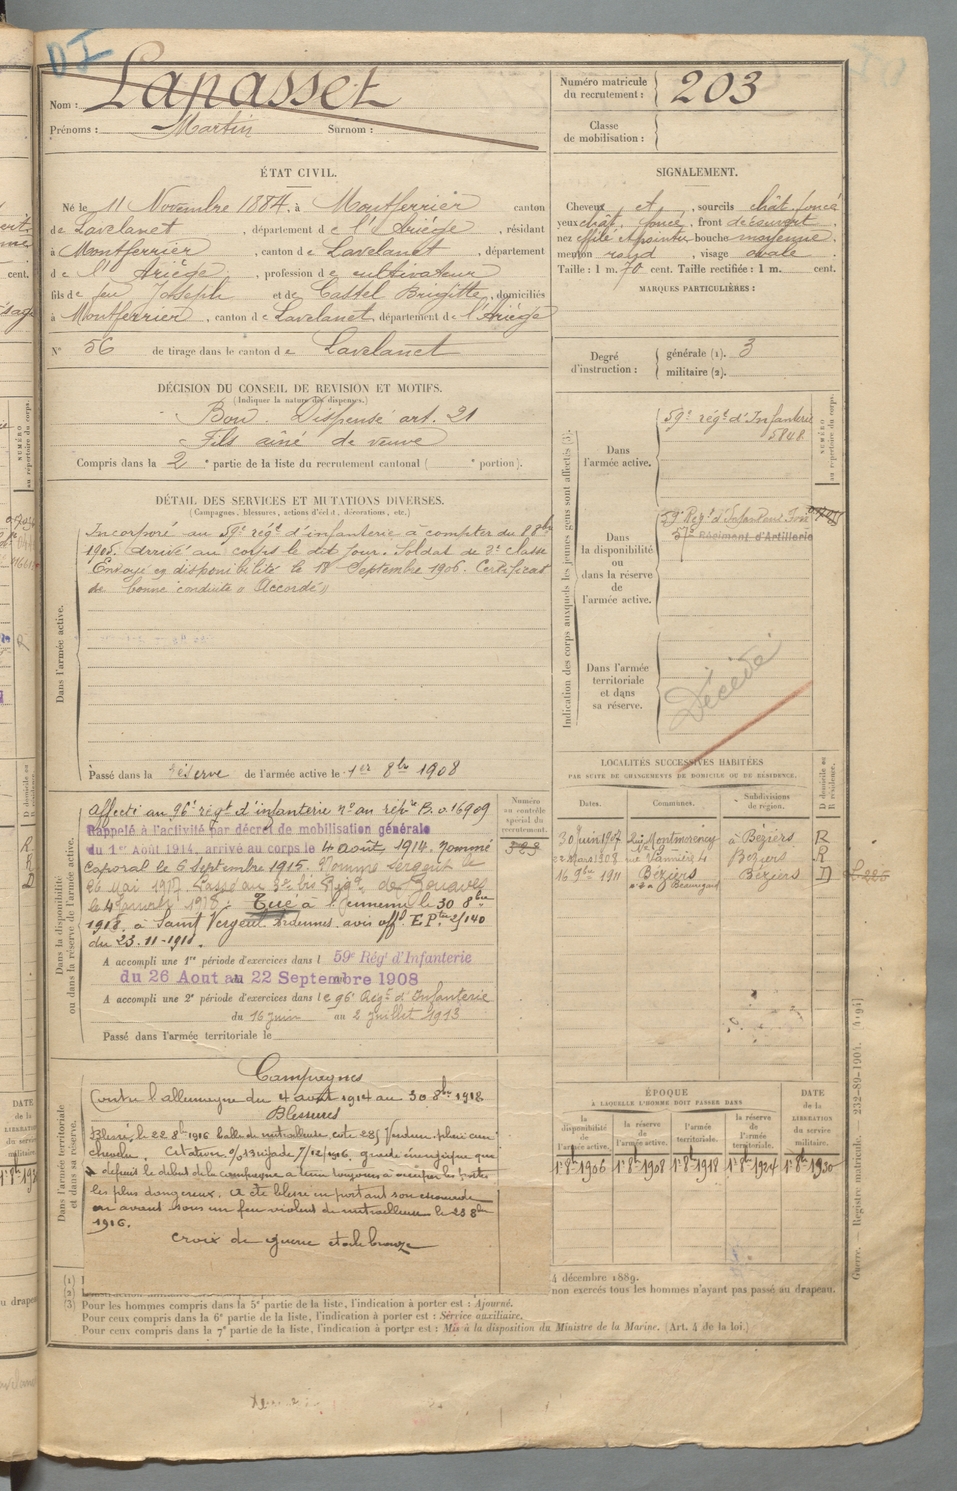 DI
Nom : Lapasset
Prénoms : Martin Surnom :
Numéro matricule du recrutement : 203
Classe de mobilisation :
ÉTAT CIVIL.
Né le 11 Novembre 1884, à Montferrier canton
de Lavelanet, département de l'Ariège, résidant
à Montferrier, canton de Lavelanet, département
de l'Ariège, profession de cultivateur
fils de feu Joseph et de Castel Brigitte, domiciliés
à Montferrier, canton de Lavelanet, département de l'Ariège
N° 56 de tirage dans le canton de Lavelanet
SIGNALEMENT.
Cheveux et, sourcils chât. foncé
yeux chât. foncé, front découvert,
nez effilé et pointu bouche moyenne,
menton rond, visage ovale.
Taille : 1 m. 70 cent. Taille rectifiée : 1 m. cent.
MARQUES PARTICULIÈRES :
Degré d'instruction : générale (1). 3
militaire (2).
DÉCISION DU CONSEIL DE REVISION ET MOTIFS.
(Indiquer la nature des dispenses.)
Bon. Dispensé art. 21
Fils aîné de veuve
Compris dans la 2e partie de la liste du recrutement cantonal ( e portion).
DÉTAIL DES SERVICES ET MUTATIONS DIVERSES.
(Campagnes, blessures, actions d'éclat, décorations, etc.)
Dans l'armée active.
Incorporé au 59e régt d'infanterie à compter du 8 8bre
1905. Arrivé au corps le dit jour. Soldat de 2e classe
Envoyé en disponibilité le 18 Septembre 1906. Certificat
de bonne conduite "Accordé"
Passé dans la réserve de l'armée active le 1er 8bre 1908
Indication des corps auxquels les jeunes gens sont affectés (3).
Dans l'armée active.
59e régt d'Infanterie
5848
NUMÉRO au répertoire du corps.
Dans la disponibilité ou dans la réserve de l'armée active.
59e Régt d'Infanterie
Régiment d'Artillerie
Dans l'armée territoriale et dans sa réserve.
Décédé
Dans la disponibilité ou dans la réserve de l'armée active.
Affecté au 96e régt d'infanterie no au rép. 16909
Rappelé à l'activité par décret de mobilisation générale
du 1er Août 1914, arrivé au corps le 4 août 1914. Nommé
Caporal le 6 Septembre 1915. Nommé Sergent le
26 mai 1917. Passé au 3e bis Régt de Zouaves
le 4 janvier 1918. Tué à l'ennemi le 30 8bre
1918, à Saint Vergeul Ardennes. avis offl. E Pte 2/140
du 23.11-1918.
Numéro au contrôle spécial du recrutement.
A accompli une 1re période d'exercices dans l 59e Régt d'Infanterie
du 26 Aout au 22 Septembre 1908
A accompli une 2e période d'exercices dans le 96e Régt d'Infanterie
du 16 juin au 2 juillet 1913
Passé dans l'armée territoriale le
LOCALITÉS SUCCESSIVES HABITÉES
PAR SUITE DE CHANGEMENTS DE DOMICILE OU DE RÉSIDENCE.
Dates. Communes. Subdivisions de région. D domicile ou R résidence.
30 Juin 1907 Montmorency à Béziers R
Mars 1908 rue Vannière 4 Béziers R
16 9bre 1911 Béziers Béziers D
Dans l'armée territoriale et dans sa réserve.
Campagnes
Contre l'allemagne du 4 août 1914 au 30 8bre 1918
Blessures
Blessé, le 22 8bre 1916 balle de mitrailleuse, cote 285 Verdun. plaie cuir
chevelu. Citation o/ brigade 7/12/1916, gradé énergique qui
depuis le début de la campagne a tenu toujours à occuper les postes
les plus dangereux. A été blessé en portant son escouade
en avant sous un feu violent de mitrailleuses le 23 8bre
1916.
Croix de guerre étoile bronze
ÉPOQUE
À LAQUELLE L'HOMME DOIT PASSER DANS
la disponibilité de l'armée active. la réserve de l'armée active. l'armée territoriale. la réserve de l'armée territoriale.
DATE de la LIBÉRATION du service militaire.
1er 8bre 1906 1er 8bre 1908 1er 8bre 1918 1er 8bre 1924 1er 8bre 1930
(1)
4 décembre 1889.
(2)
non exercés tous les hommes n'ayant pas passé au drapeau.
(3) Pour les hommes compris dans la 5e partie de la liste, l'indication à porter est : Ajourné.
Pour ceux compris dans la 6e partie de la liste, l'indication à porter est : Service auxiliaire.
Pour ceux compris dans la 7e partie de la liste, l'indication à porter est : Mis à la disposition du Ministre de la Marine. (Art. 4 de la loi.)
Guerre. — Registre matricule. — 232-89-1904. [4194]